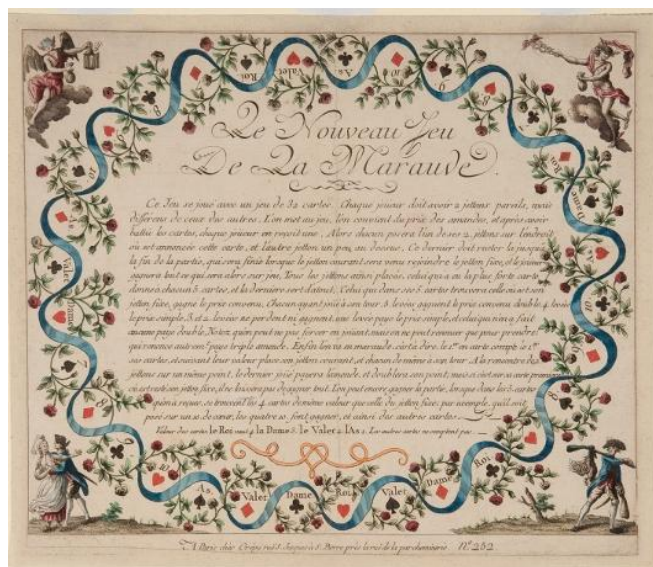 Le Nouveau Jeu
De La Maraude.
Ce Jeu se joue avec un jeu de 32 cartes. Chaque joueur doit avoir 2 jettons pareils, mais
differens de ceux des autres. L'on met au jeu, l'on convient du prix des amandes, et après avoir
battu les cartes, chaque joueur en reçoit une. Alors chacun posera l'un de ses 2 jettons sur l'endroit
où est annoncée cette carte, et l'autre jetton un peu au dessus. Ce dernier doit rester là jusqu'à
la fin de la partie, qui sera finie lorsque le jetton courant sera venu rejoindre le jetton fixe, et le joueur
gagnera tout ce qui sera alors au jeu. Tous les jettons ainsi placés, celui qui a eu la plus forte carte
donnera chacun 5 cartes, et la derniere sert d'atout. Celui qui dans ses 5 cartes trouvera celle où est son
jetton fixe, gagne le prix convenu. Chacun ayant joué à son tour. 5 levées gagnent le prix convenu double, 4 levées
le prix simple, 3 et 2 levées ne perdent ni gagnent, une levée paye le prix simple, et celui qui n'en a fait
aucune paye double. Notez qu'on peut ne pas forcer en jouant, mais on ne peut renoncer que pour prendre:
qui renonce autremt. paye triple amende. Enfin l'on va en maraude: c'est à dire, le 1er. en carte compte
ses cartes, et suivant leur valeur place son jetton courant, et chacun de même à son tour. A la rencontre des
jettons sur un même point, le dernier joué payera l'amende, et doublera son point; mais si c'est sur sa carte
où est resté son jetton fixe, il ne laissera pas de gagner tout. L'on peut encore gagner la partie, lorsque dans les 5 cartes
qu'on a reçues, se trouvent les 4 cartes de même valeur que celle du jetton fixe; par exemple, qu'il soit
posé sur un 10 de cœur, les quatre 10. font gagner, et ainsi des autres cartes.
Valeur des cartes le Roi vaut 4 la Dame 3. le Valet 2 l'As 1. Les autres cartes ne comptent pas.
Roi
Valet
As
10
9
8
7
Roi
Dame
Valet
10
8
7
Roi
Dame
Valet
Roi
Dame
Valet
As.
10
9
8
Dame
Valet
As
10
8
A Paris chéz Crépy rue S. Jacques à S. Pierre près la rue de la parcheminerie. No. 252